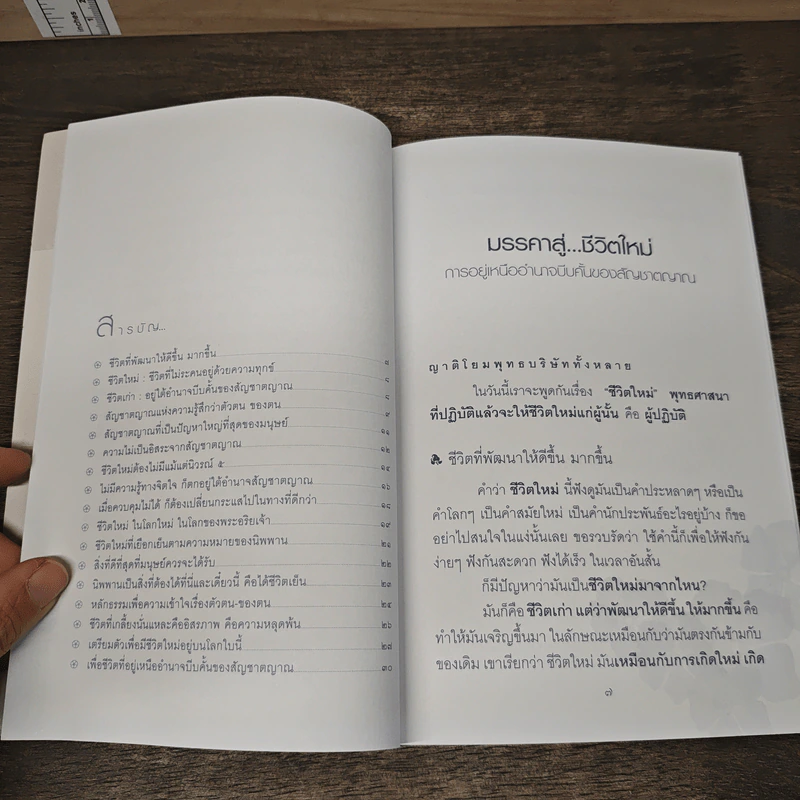 สารบัญ...
ชีวิตที่พัฒนาให้ดีขึ้น มากขึ้น ๗
ชีวิตใหม่ : ชีวิตที่ไม่ระคนอยู่ด้วยความทุกข์ ๘
ชีวิตเก่า : อยู่ใต้อำนาจบีบคั้นของสัญชาตญาณ ๘
สัญชาตญาณแห่งความรู้สึกว่าตัวตน ของตน ๙
สัญชาตญาณที่เป็นปัญหาใหญ่ที่สุดของมนุษย์ ๑๑
ความไม่เป็นอิสระจากสัญชาตญาณ ๑๒
ชีวิตใหม่ต้องไม่มีแม้แต่นิวรณ์ ๕ ๑๔
ไม่มีความรู้ทางจิตใจ ก็ตกอยู่ใต้อำนาจสัญชาตญาณ ๑๖
เมื่อควบคุมไม่ได้ ก็ต้องเปลี่ยนกระแสไปในทางที่ดีกว่า ๑๘
ชีวิตใหม่ ในโลกใหม่ ในโลกของพระอริยเจ้า ๑๙
ชีวิตใหม่ที่เยือกเย็นตามความหมายของนิพพาน ๒๑
สิ่งที่ดีที่สุดที่มนุษย์ควรจะได้รับ ๒๒
นิพพานเป็นสิ่งที่ต้องได้ที่นี่และเดี๋ยวนี้ คือได้ชีวิตเย็น ๒๓
หลักธรรมเพื่อความเข้าใจเรื่องตัวตน-ของตน ๒๔
ชีวิตที่เกลี้ยงนั่นแหละคืออิสรภาพ คือความหลุดพ้น ๒๖
เตรียมตัวเพื่อมีชีวิตใหม่อยู่บนโลกใบนี้ ๒๗
เพื่อชีวิตที่อยู่เหนืออำนาจบีบคั้นของสัญชาตญาณ ๓๐
มรรคาสู่...ชีวิตใหม่
การอยู่เหนืออำนาจบีบคั้นของสัญชาตญาณ
ญาติโยมพุทธบริษัททั้งหลาย
ในวันนี้เราจะพูดกันเรื่อง "ชีวิตใหม่" พุทธศาสนา
ที่ปฏิบัติแล้วจะให้ชีวิตใหม่แก่ผู้นั้น คือ ผู้ปฏิบัติ
ชีวิตที่พัฒนาให้ดีขึ้น มากขึ้น
คำว่า ชีวิตใหม่ นี้ฟังดูมันเป็นคำประหลาดๆ หรือเป็น
คำโลกๆ เป็นคำสมัยใหม่ เป็นคำนักประพันธ์อะไรอยู่บ้าง ก็ขอ
อย่าไปสนใจในแง่นั้นเลย ขอรวบรัดว่า ใช้คำนี้ก็เพื่อให้ฟังกัน
ง่ายๆ ฟังกันสะดวก ฟังได้เร็ว ในเวลาอันสั้น
ก็มีปัญหาว่ามันเป็นชีวิตใหม่มาจากไหน?
มันก็คือ ชีวิตเก่า แต่ว่าพัฒนาให้ดีขึ้น ให้มากขึ้น คือ
ทำให้มันเจริญขึ้นมา ในลักษณะเหมือนกับว่ามันตรงกันข้ามกับ
ของเดิม เขาเรียกว่า ชีวิตใหม่ มันเหมือนกับการเกิดใหม่ เกิด
๗
inches
1